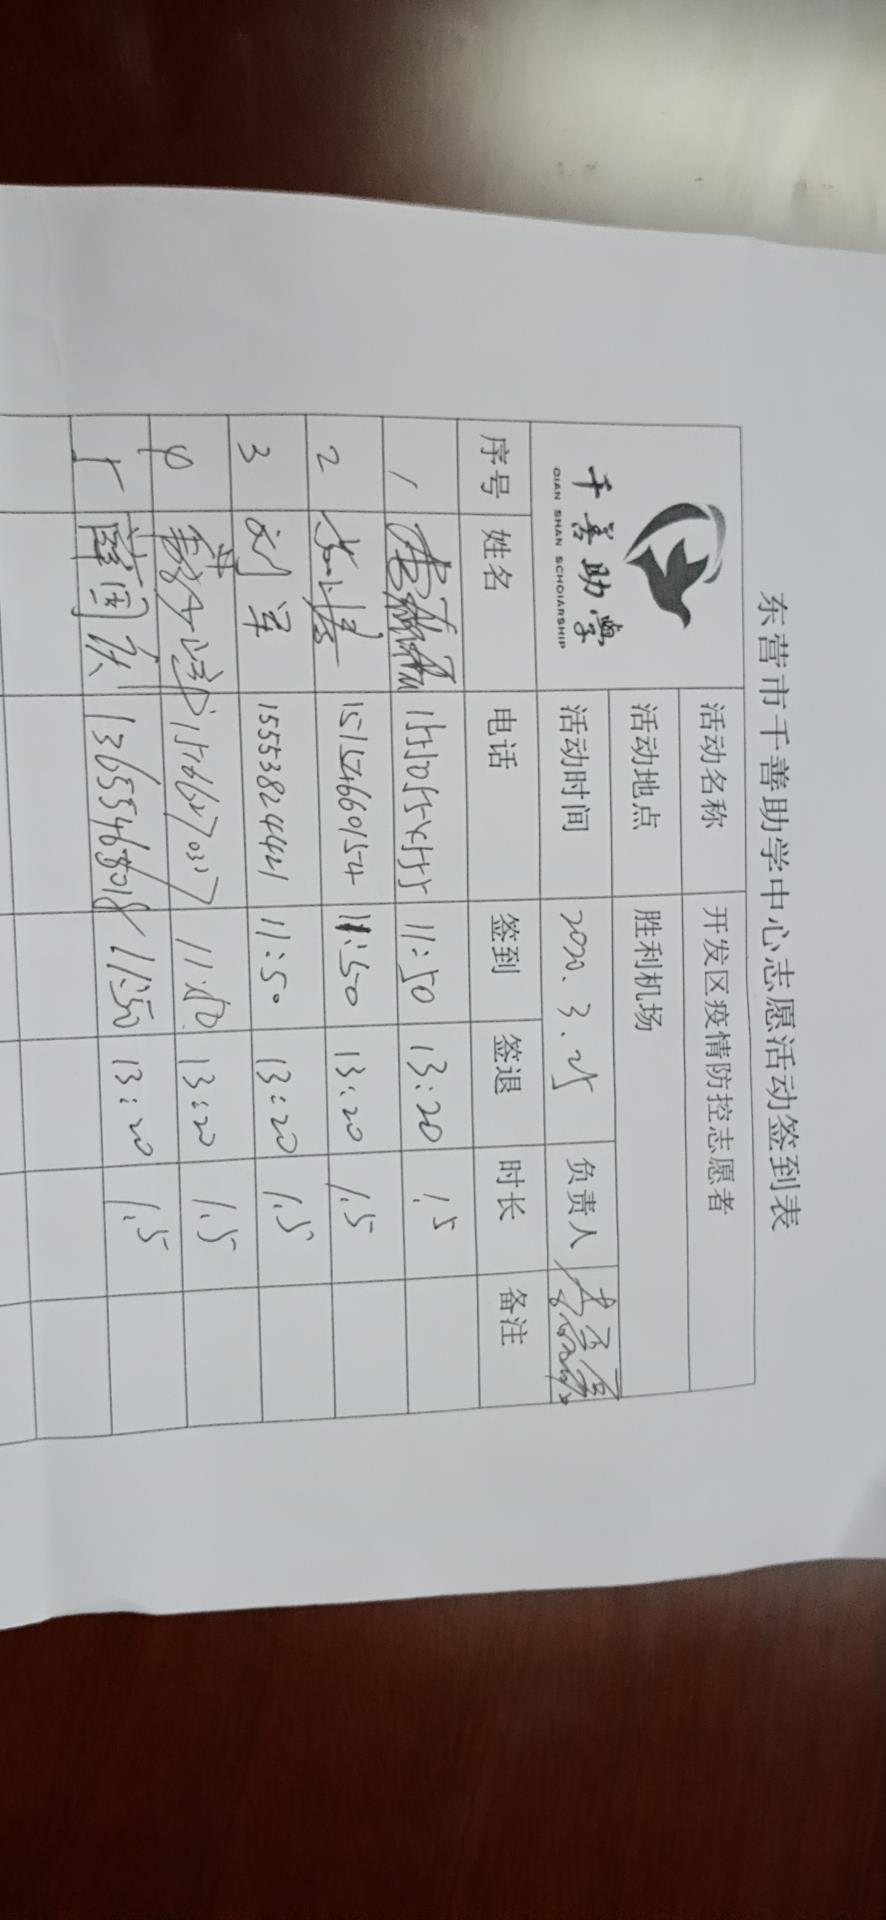 东营市千善助学中心志愿活动签到表
千善助学
QIAN SHAN SCHOIARSHIP
活动名称 开发区疫情防控志愿者
活动地点 胜利机场
活动时间 2020.3.25 负责人
序号 姓名 电话 签到 签退 时长 备注
1 11:50 13:20 1.5
2 15154660154 11:50 13:20 1.5
3 刘军 15553824421 11:50 13:20 1.5
4 11:50 13:20 1.5
5 国庆 13655468018 11:50 13:20 1.5